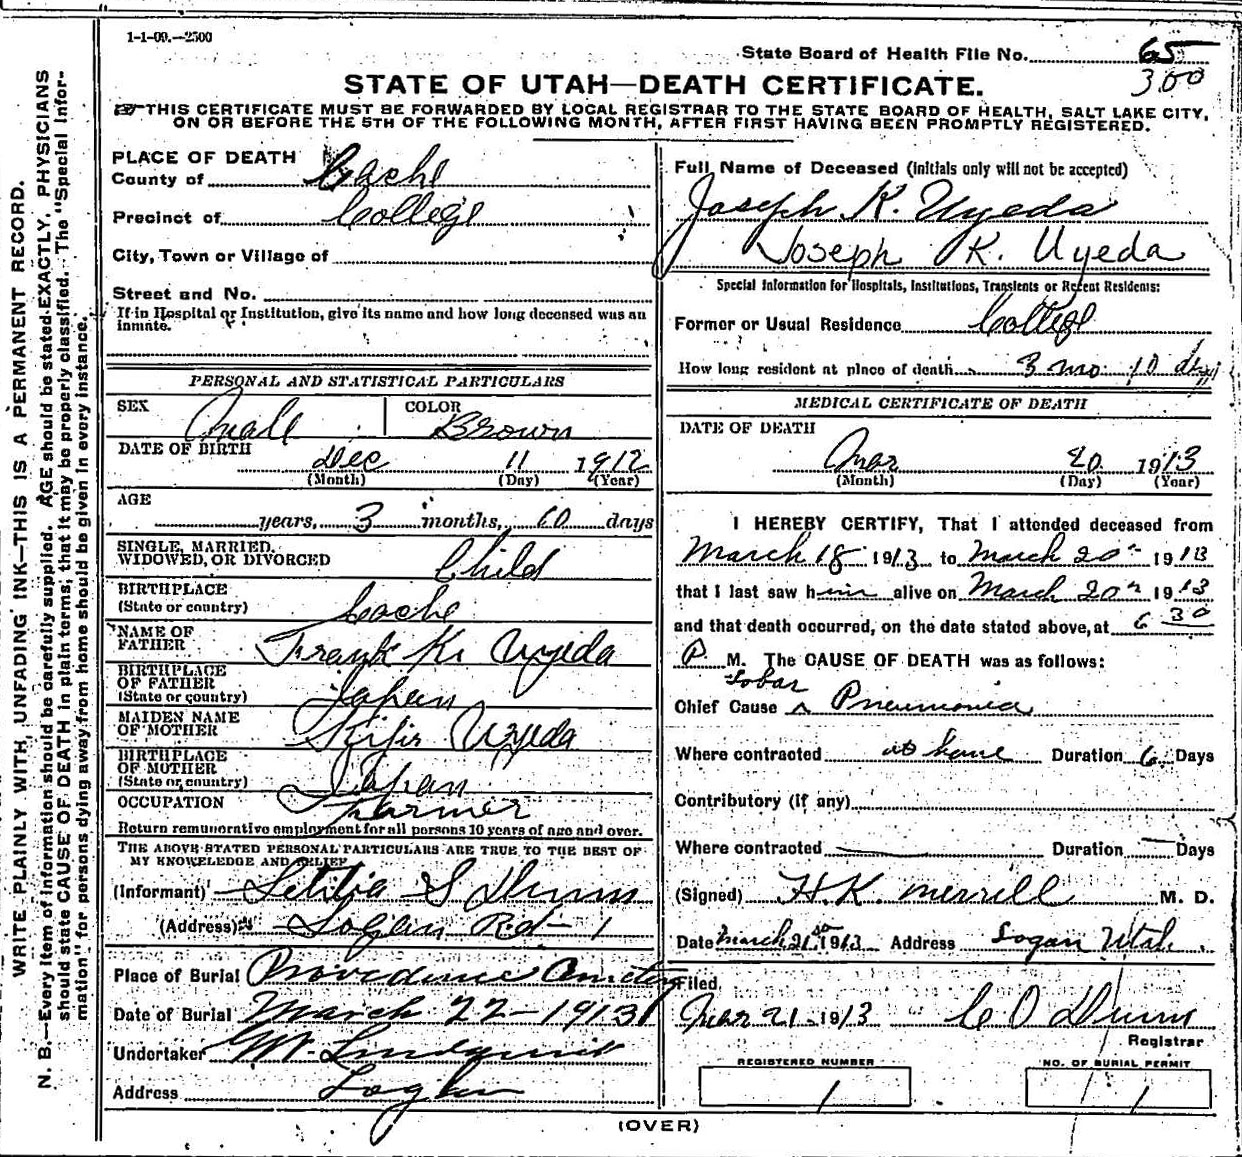 1-1-09.—2500
State Board of Health File No. 65
300
STATE OF UTAH—DEATH CERTIFICATE.
THIS CERTIFICATE MUST BE FORWARDED BY LOCAL REGISTRAR TO THE STATE BOARD OF HEALTH, SALT LAKE CITY,
ON OR BEFORE THE 5TH OF THE FOLLOWING MONTH, AFTER FIRST HAVING BEEN PROMPTLY REGISTERED.
WRITE PLAINLY WITH UNFADING INK—THIS IS A PERMANENT RECORD.
N. B.—Every item of information should be carefully supplied. AGE should be stated EXACTLY, PHYSICIANS
should state CAUSE OF DEATH in plain terms, that it may be properly classified. The "Special Infor-
mation" for persons dying away from home should be given in every instance.
PLACE OF DEATH
County of Cache
Precinct of College
City, Town or Village of
Street and No.
If in Hospital or Institution, give its name and how long deceased was an
inmate.
PERSONAL AND STATISTICAL PARTICULARS
SEX Male COLOR Brown
DATE OF BIRTH Dec 11 1912
(Month) (Day) (Year)
AGE
years, 3 months, 10 days
SINGLE, MARRIED,
WIDOWED, OR DIVORCED Child
BIRTHPLACE
(State or country) Cache
NAME OF
FATHER Frank K. Uyeda
BIRTHPLACE
OF FATHER
(State or country) Japan
MAIDEN NAME
OF MOTHER Uyeda
BIRTHPLACE
OF MOTHER
(State or country) Japan
OCCUPATION Farmer
Return remunerative employment for all persons 10 years of age and over.
THE ABOVE STATED PERSONAL PARTICULARS ARE TRUE TO THE BEST OF
MY KNOWLEDGE AND BELIEF
(Informant) Letitia S Dunn
(Address) Logan Rd-1
Place of Burial Providence Cemetery
Date of Burial March 22-1913
Undertaker Lindquist
Address Logan
Full Name of Deceased (Initials only will not be accepted)
Joseph K. Uyeda
Joseph K. Uyeda
Special Information for Hospitals, Institutions, Transients or Recent Residents:
Former or Usual Residence College
How long resident at place of death 3 mo 10 days
MEDICAL CERTIFICATE OF DEATH
DATE OF DEATH
Mar 20 1913
(Month) (Day) (Year)
I HEREBY CERTIFY, That I attended deceased from
March 18 1913 to March 20th 1913
that I last saw him alive on March 20th 1913
and that death occurred, on the date stated above, at 6 30
P. M. The CAUSE OF DEATH was as follows:
Lobar
Chief Cause ^ Pneumonia
Where contracted at home Duration 6 Days
Contributory (if any)
Where contracted Duration Days
(Signed) H.K. Merrill M. D.
Date March 21st 1913 Address Logan Utah
Filed
Mar 21-1913 C O Dunn
Registrar
REGISTERED NUMBER
1
NO. OF BURIAL PERMIT
1
(OVER)